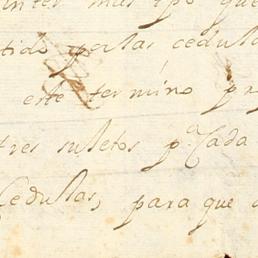 inter mas tpo que
tido perlas cedula
este termino pr
tres suletos p.ª Cada
Cedullas, para que